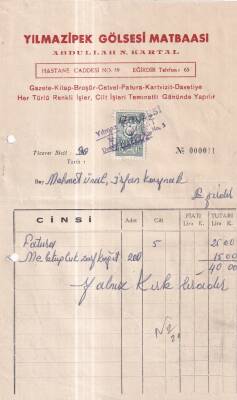 YILMAZİPEK GÖLSESİ MATBAASI
ABDULLAH N. KARTAL
HASTANE CADDESİ NO. 19 EĞİRDİR Telefon: 65
Gazete-Kitap-Broşür-Cetvel-Fatura-Kartvizit-Davetiye
Her Türlü Renkli İşler, Cilt İşleri Teminatlı Gününde Yapılır
Ticaret Sicil : 90
Tarih :
№ 000011
Bay Mehmet Ünal, İrfan Kaynak
Eğirdir
CİNSİ Adet Cilt FİATI Lira K. TUTARI Lira K.
Fatura 5 25 00
Mektupluk zarf kağıt 200 15 00
40 00
Yalnız Kırk liradır